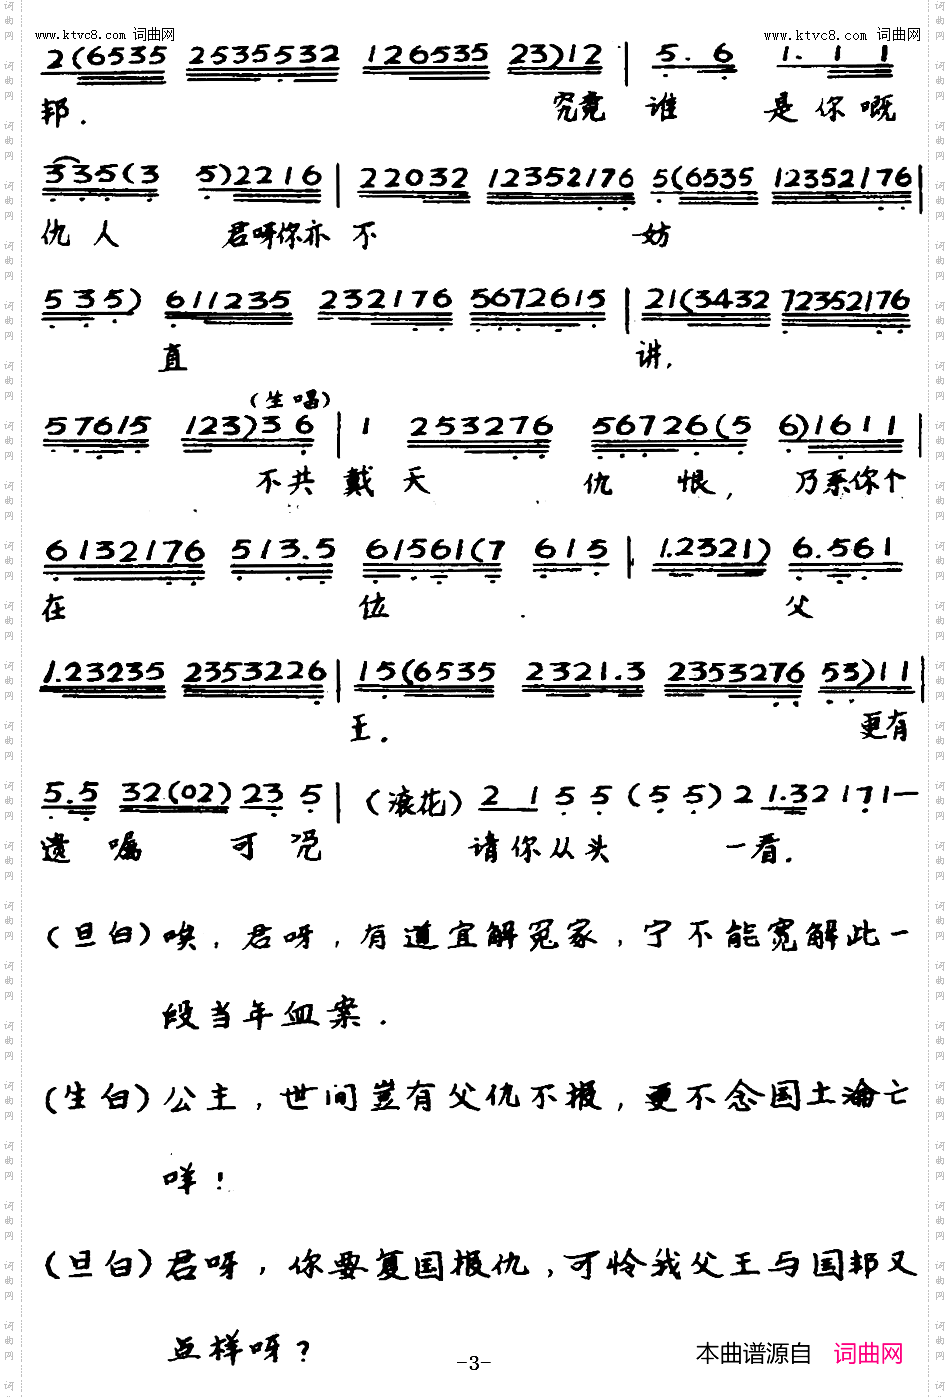 www.ktvc8.com 词曲网 www.ktvc8.com 词曲网
2(6535 2535532 126535 23)12 | 5.6 1.11
邦. 究竟谁 是你嘅
335(3 5)2216 | 22032 12352176 5(6535 12352176 |
仇人 君呀你亦不 妨
535) 611235 232176 5672615 | 21(3432 72352176
直 讲.
(生唱)
57615 123)36 | 1 253276 56726(5 6)1611 |
不共戴天 仇恨, 乃系你个
6132176 513.5 61561(7 615 | 1.2321) 6.561
在 位. 父
1.23235 2353226 | 15(6535 2321.3 2353276 53)11 |
王. 更有
5.5 32(02) 23 5 | (滚花) 2 1 5 5 (5 5) 2 1.32 1 7 1—
遗嘱 可况 请你从头 一看.
(旦白)唉,君呀,有道宜解冤家,宁不能宽解此一
段当年血案.
(生白)公主,世间岂有父仇不报,更不念国土沦亡
咩!
(旦白)君呀,你要复国报仇,可怜我父王与国邦又
点样呀?
-3-
本曲谱源自 词曲网